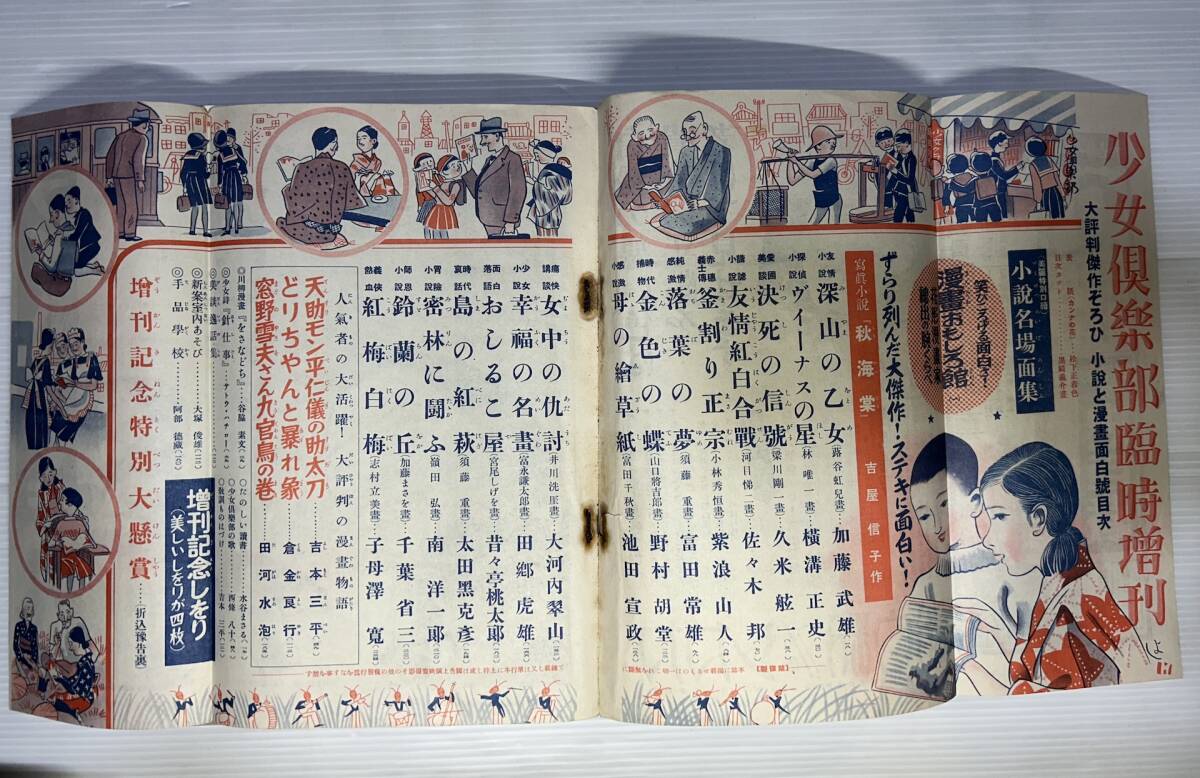 少女倶樂部臨時増刊
大評判傑作ぞろひ 小説と漫畫面白號目次
小説名場面集
漫畫おもしろ館
ずらり列んだ大傑作!ステキに面白い!
寫眞小説「秋海棠」 吉屋信子作
友情小説 深山の乙女(蕗谷虹兒畫) 加藤武雄
探偵小説 ヴィーナスの星(林唯一畫) 横溝正史
愛國美談 決死の信號(梁川剛一畫) 久米舷一
友情紅白合戰(河目悌二畫) 佐々木邦
赤穗義士傳 釜割り正宗(小林秀恒畫) 紫浪山人
純情 落葉の夢(須藤重畫) 富田常雄
時代捕物 金色の蝶(山口將吉郎畫) 野村胡堂
感激小説 母の繪草紙(富田千秋畫) 池田宣政
痛快講談 女中の仇討(井川洗厓畫) 大河内翠山
少女小説 幸福の名畫(富永謙太郎畫) 田郷虎雄
面白落語 おしるこ屋(宮尾しげを畫) 昔々亭桃太郎
時代哀話 島の紅萩(須藤重畫) 太田黒克彦
冒險小説 密林に闘ふ(嶺田弘畫) 南洋一郎
師恩小説 鈴蘭の丘(加藤まさを畫) 千葉省三
義俠熱血 紅梅白梅(志村立美畫) 子母澤寛
人氣者の大活躍! 大評判の漫畫物語
天助モン平仁儀の助太刀 吉本三平
どりちゃんと暴れ象 倉金良行
窓野雪夫さん九官鳥の卷 田河水泡
◎少女詩『針仕事』 サトウ・ハチロー
◎笑談逸話集
◎新案室内あそび 大塚俊雄
◎手品學校 阿部德藏
◎たのしい讀書 水谷まさる
◎少女倶樂部の歌 西條八十
増刊記念しをり
(美しいしをりが四枚)
増刊記念特別大懸賞……(折込豫告裏)